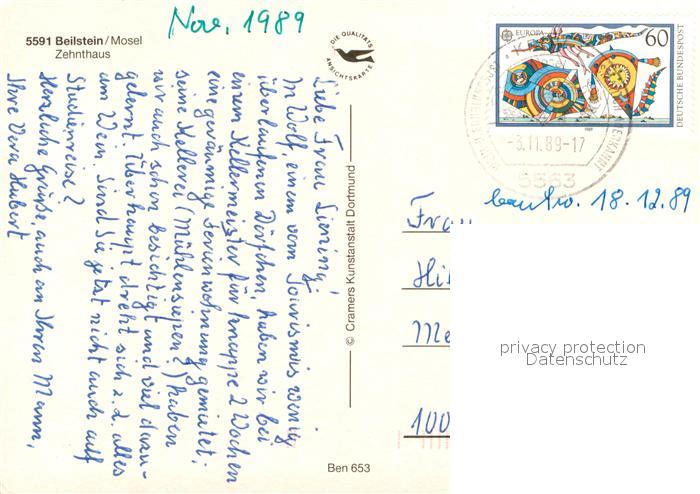 Nov. 1989
5591 Beilstein/Mosel
Zehnthaus
DIE QUALITÄTS
ANSICHTSKARTE
Liebe Frau
In Wolf, einem vom Tourismus wenig
überlaufenen Dörfchen, haben wir bei
einem Kellermeister für knappe 2 Wochen
eine geräumige Ferienwohnung gemietet.
Seine Kellerei (Mühlensiepen?) haben
wir auch schon besichtigt und viel dazu-
gelernt. Überhaupt dreht sich z.Z. alles
um Wein. Sind Sie jetzt nicht auch auf
Studienreise?
Herzliche Grüße, auch an Ihren Mann,
Ihre Vera Hubert
© Cramers Kunstanstalt Dortmund
Ben 653
EUROPA
60
DEUTSCHE BUNDESPOST
1989
-3.11.89-17
5563
beantw. 18.12.89
Frau
Hil
Me
100
privacy protection
Datenschutz